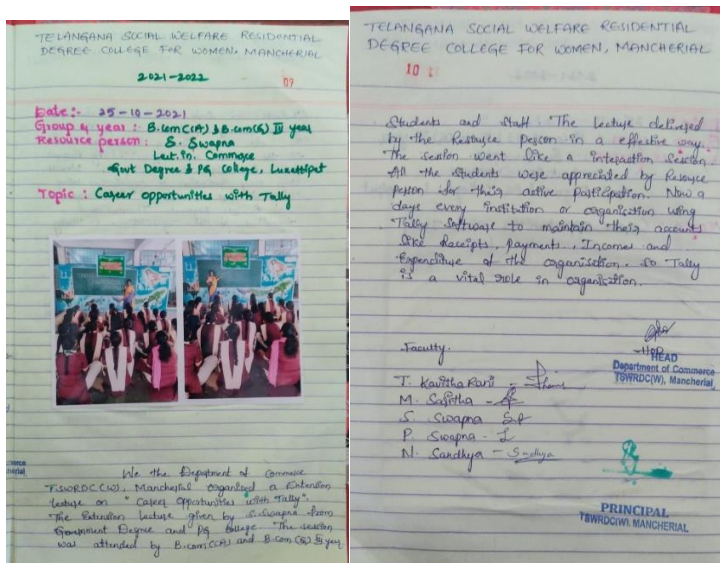 TELANGANA SOCIAL WELFARE RESIDENTIAL
DEGREE COLLEGE FOR WOMEN, MANCHERIAL
2021-2022
09
Date:- 25-10-2021
Group & year : B.com(CA) & B.com(G) III year
Resource person : S. Swapna
Lect. in. Commerce
Govt Degree & PG College, Luxettipet
Topic : Career opportunities with Tally
We the Department of Commerce
TSWRDC(W), Mancherial organised a Extension
lecture on "Career Opportunities with Tally".
The Extension lecture given by S. Swapna from
Government Degree and PG College. The session
was attended by B.com(CA) and B.com(G) III year
TELANGANA SOCIAL WELFARE RESIDENTIAL
DEGREE COLLEGE FOR WOMEN, MANCHERIAL
10
Students and staff. The lecture delivered
by the Resource person in a effective way.
The session went like a interaction session.
All the students were appreciated by Resource
person for their active participation. Now a
days every institution or organisation using
Tally Software to maintain their accounts
like Receipts, payments, Incomes and
Expenditure of the organisation. So Tally
is a vital role in organisation.
Faculty.
T. Kavitha Rani -
M. Sajitha -
S. Swapna
P. Swapna -
N. Sandhya - Sandhya
HOD
HEAD
Department of Commerce
TSWRDC(W), Mancherial
PRINCIPAL
TSWRDC(W), MANCHERIAL